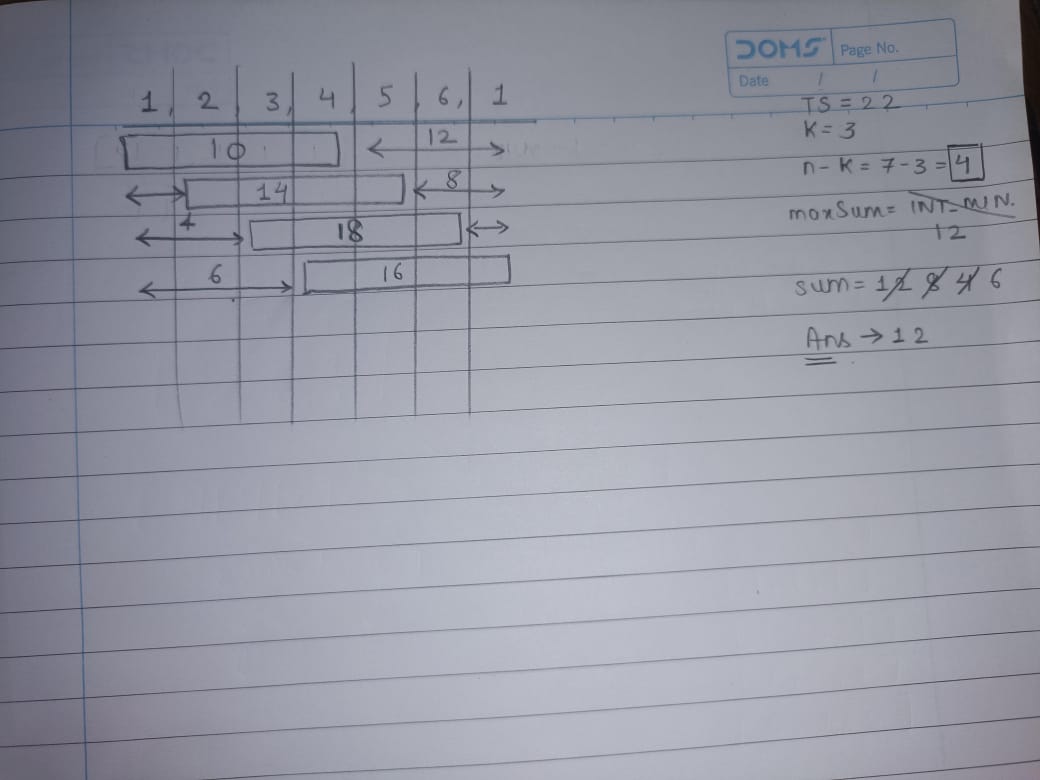 DOMS Page No.
Date / /
1, 2, 3, 4, 5, 6, 1
10 12
14 8
4 18
6 16
TS = 22
K = 3
n - K = 7 - 3 = 4
maxSum = INT_MIN.
12
sum = 12 8 4 6
Ans → 12